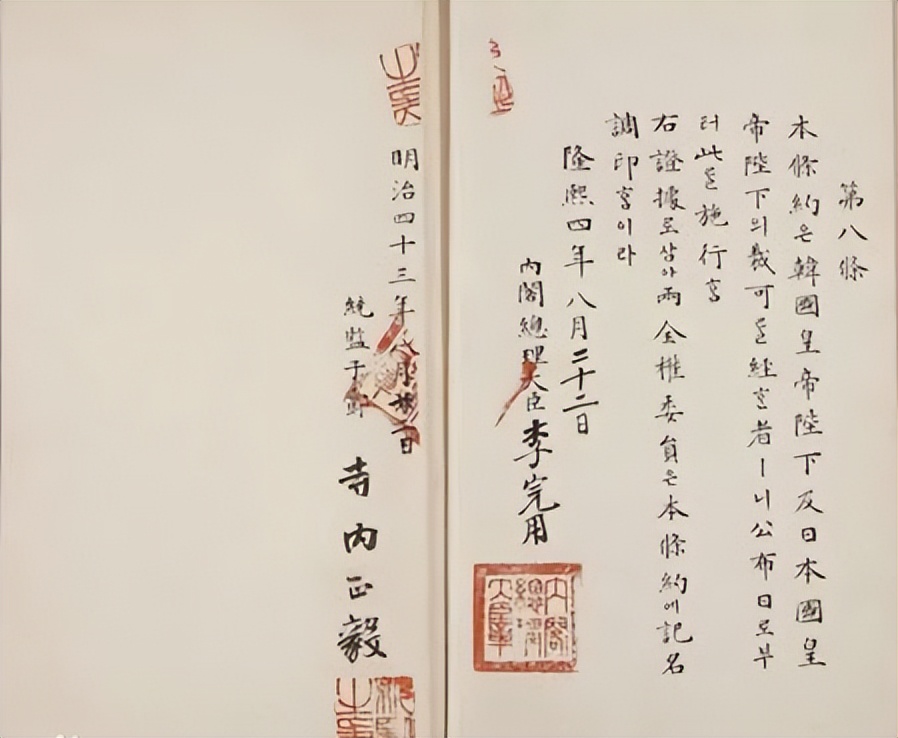 第八條
本條約은韓國皇帝陛下及日本國皇
帝陛下의裁可를經ᄒᆞᆫ者ㅣ니公布日로부
터此를施行ᄒᆞᆷ
右證據로삼아兩全權委員은本條約에記名
調印ᄒᆞᆷ이라
隆熙四年八月二十二日
內閣總理大臣 李完用
內閣總理大臣章
明治四十三年八月 二日
統監子爵 寺内正毅